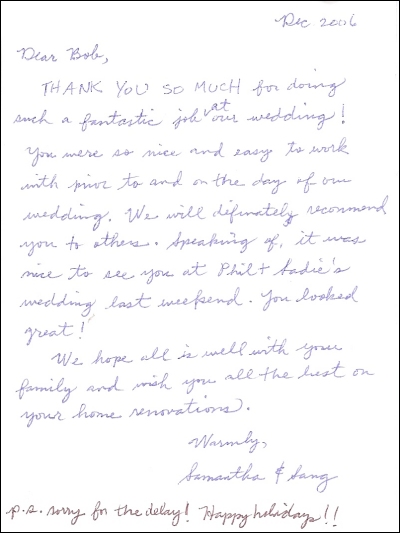 Dec 2006
Dear Bob,
THANK YOU SO MUCH for doing
at
such a fantastic job our wedding!
You were so nice and easy to work
with prior to and on the day of our
wedding. We will definately recommend
you to others. Speaking of, it was
nice to see you at Phil + Sadie's
wedding last weekend. You looked
great!
We hope all is well with your
family and wish you all the best on
your home renovations.
Warmly,
Samantha & Sang
p.s. sorry for the delay! Happy holidays!!